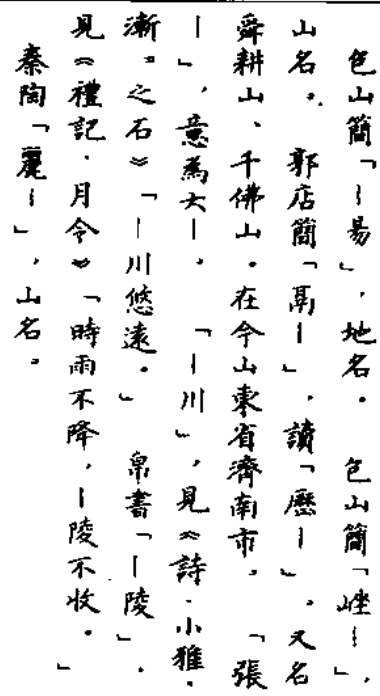 包山簡「丨昜」，地名。 包山簡「丨」，
山名。 郭店簡「鬲丨」，讀「歷丨」。又名
舜耕山、千佛山。在今山東省濟南市。 「張
丨」，意為大丨。 「丨川」，見《詩·小雅·
漸。之石》「丨川悠遠。」 帛書「丨陵」，
見《禮記·月令》「時雨不降，丨陵不收。」
秦陶「麗丨」，山名。